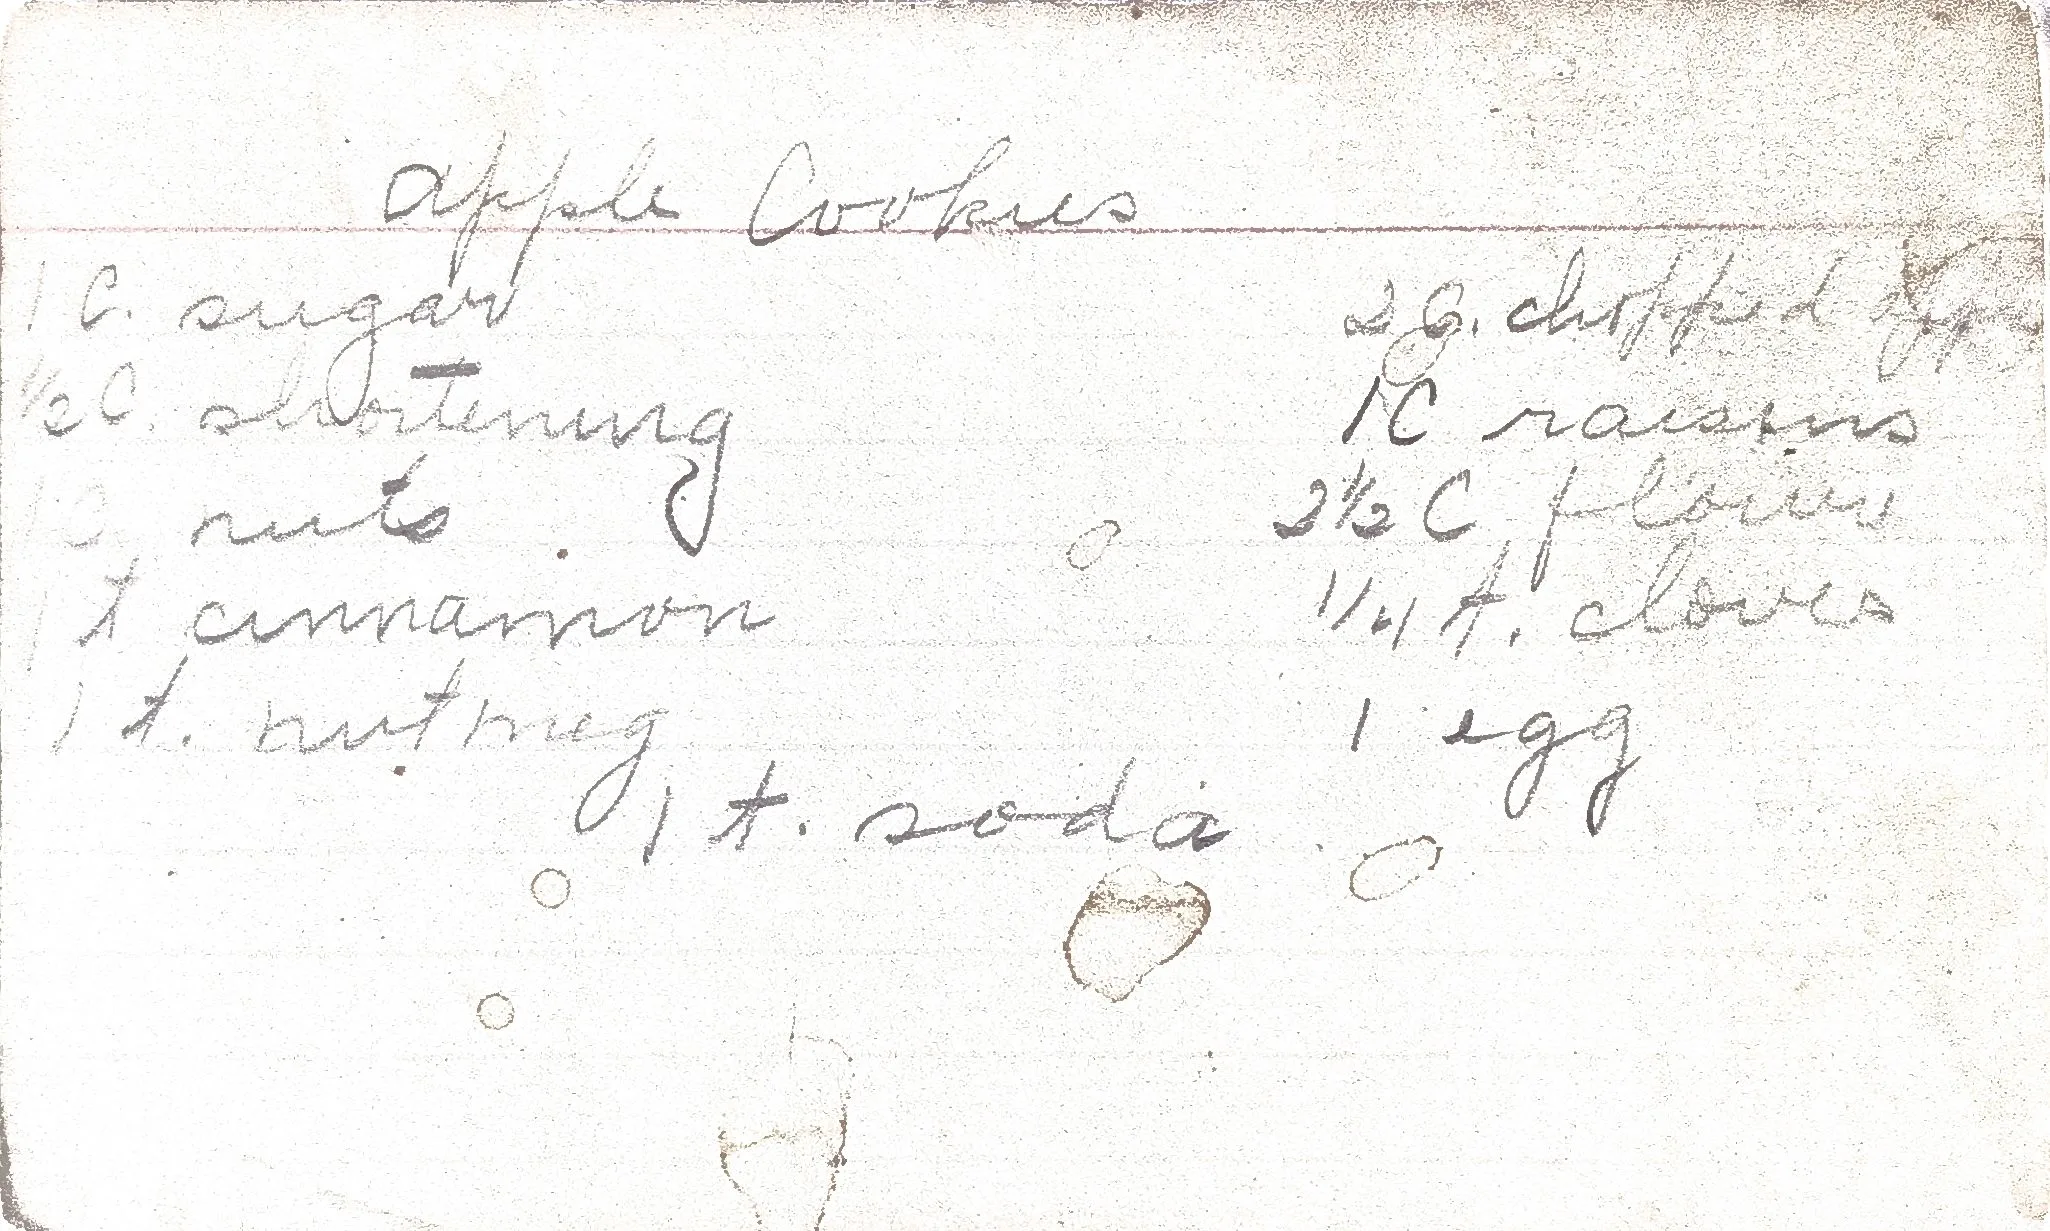 apple Cookies
1 C. sugar
½ C. shortening
1 C. nuts
1 t cinnamon
1 t. nutmeg
2 C. chopped
1 C raisins
2½ C flour
1/4 t. cloves
1 egg
1 t. soda